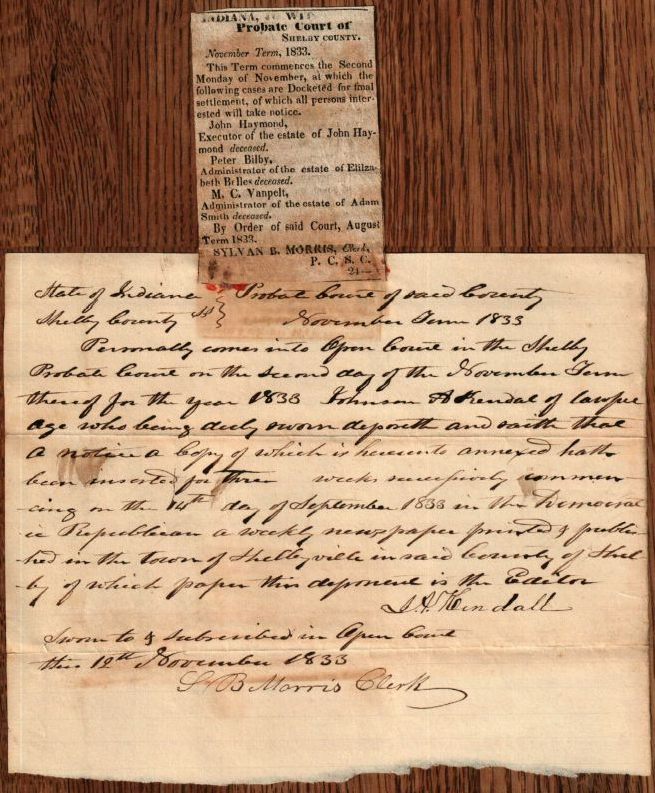 INDIANA, TO WIT
Probate Court of
SHELBY COUNTY.
November Term, 1833.
This Term commences the Second
Monday of November, at which the
following cases are Docketed for final
settlement, of which all persons inter-
ested will take notice.
John Haymond,
Executor of the estate of John Hay-
mond deceased.
Peter Bilby,
Administrator of the estate of Elilza-
beth Billes deceased.
M. C. Vanpelt,
Administrator of the estate of Adam
Smith deceased.
By Order of said Court, August
Term 1833.
SYLVAN B. MORRIS, Clerk,
P. C. S. C.
24—
State of Indiana } Probate Court of said County
Shelby County ss } November Term 1833
Personally comes into Open Court in the Shelby
Probate Court on the second day of the November Term
thereof for the year 1833 Johnson A Kendal of lawful
age who being duly sworn deposeth and saith that
a notice a Copy of which is hereunto annexed hath
been inserted for three weeks successively commen
-cing on the 14th day of September 1833 in the Democrat
ic Republican a weekly newspaper printed & publis
-hed in the town of Shelbyville in said County of Shel
-by of which paper this deponent is the Editor
J. A. Kendall
Sworn to & subscribed in Open Court
this 12th November 1833
S B Morris Clerk